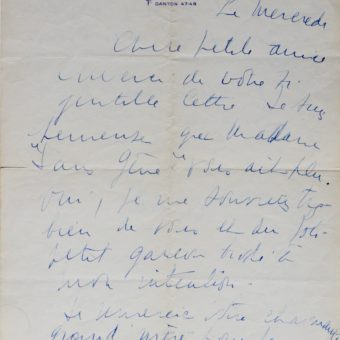 DANTON 47-48
Le Mercredi
Chère petite amie
merci de votre si
gentille lettre. Je suis
heureuse que Madame
"Sans Gêne" vous ait plu.
Oui, je me souviens très
bien de vous et du joli
petit garçon brodé à
mon intention.
Je remercie votre charmante
grand'mère pour